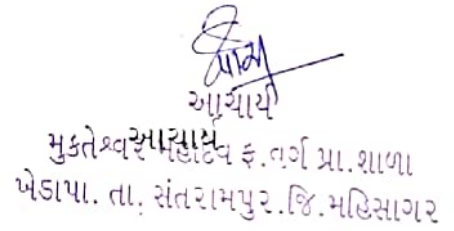 આચાર્ય
આચાર્ય
મુક્તેશ્વર મહાદેવ ફ.વર્ગ પ્રા.શાળા
ખેડાપા. તા. સંતરામપુર.જિ.મહિસાગર